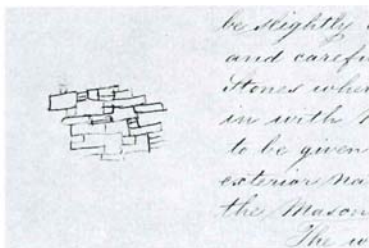 be slightly
and careful
Stones when
in with
to be given
exterior
the Mason
The